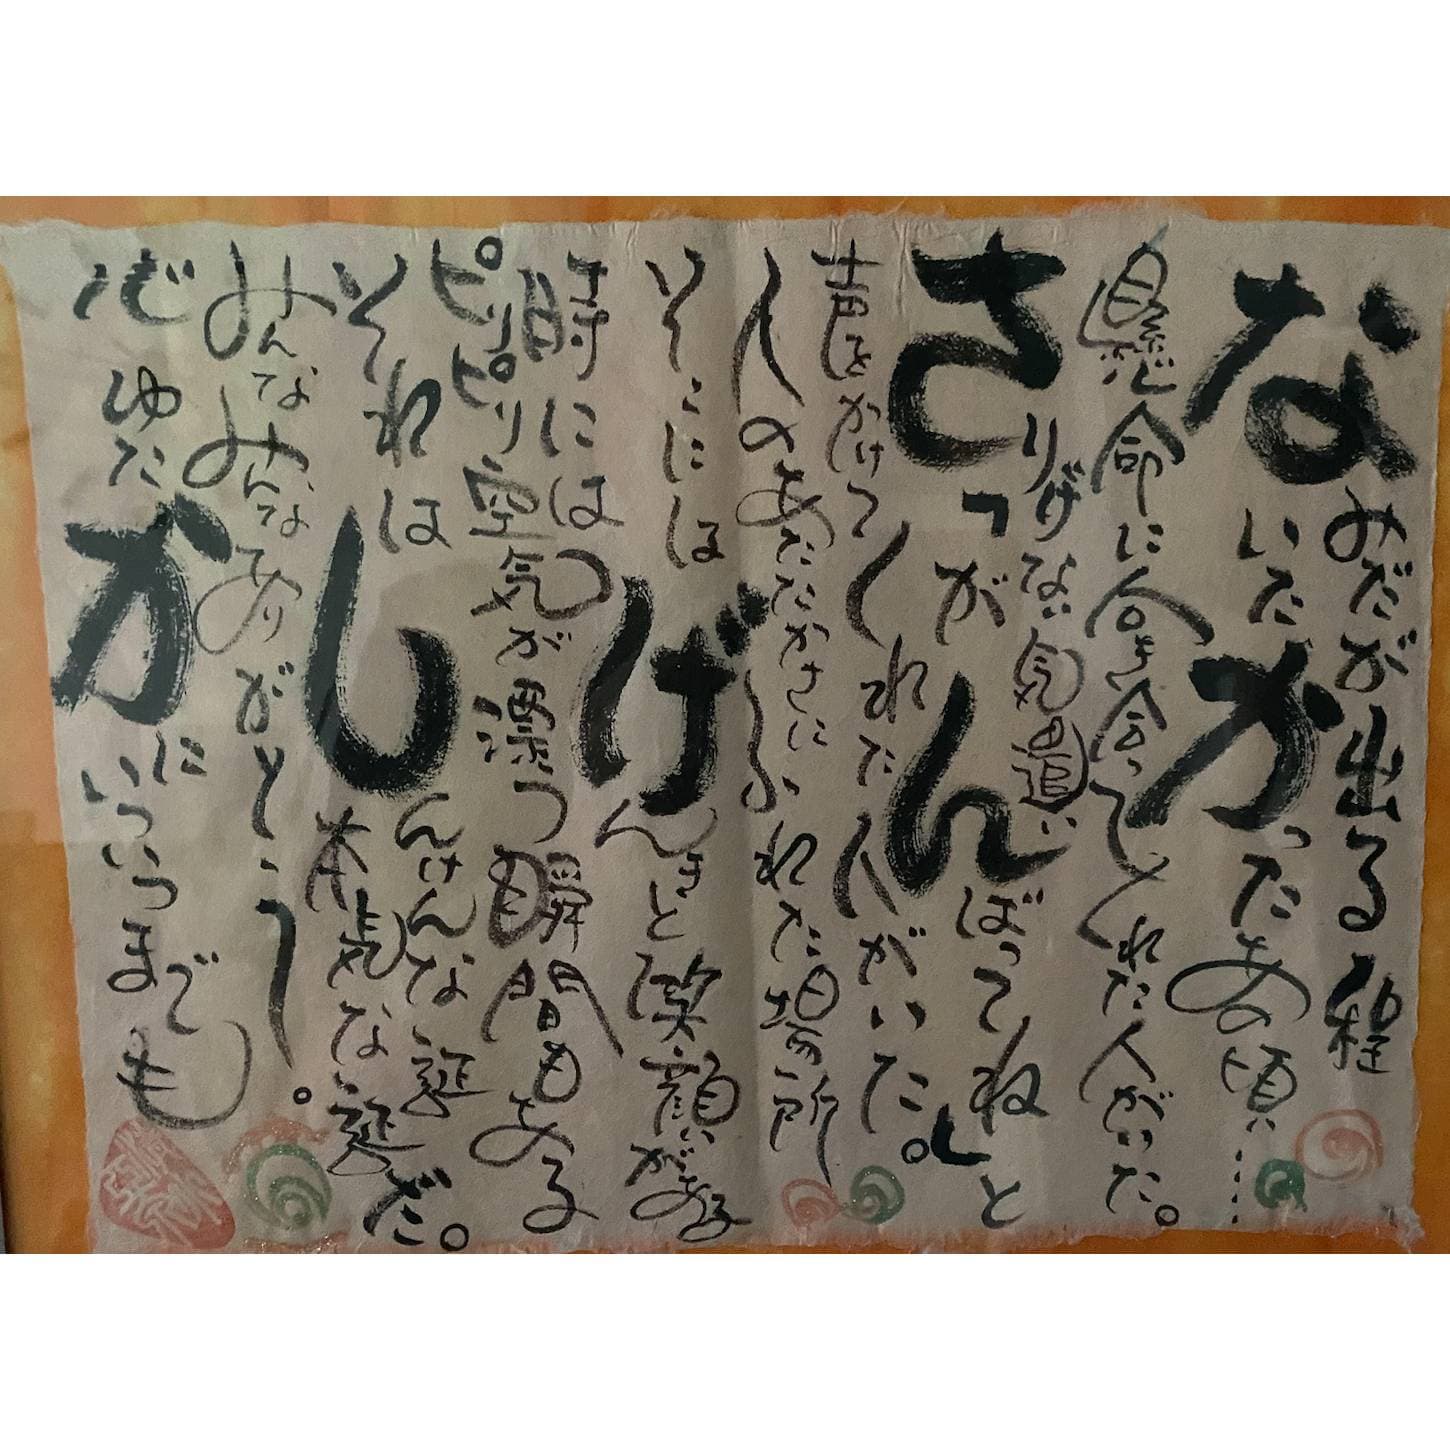 なみだが出る程
いたかったあの頃……
懸命に向き合ってくれた人がいた。
さりげない気遣い
「がんばってね」と
声をかけてくれた人がいた。
人のあたたかさにふれた場所
そこにはげんきと笑顔がある
時には
ピリピリ空気が漂う瞬間もある
それはしんけんな証
本気な証だ。
みんなみんなありがとう。
心ゆたかに
いついつまでも